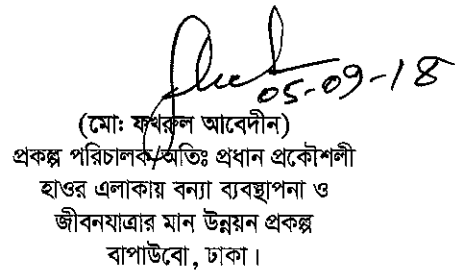 05-09-18
(মো: ফখরুল আবেদীন)
প্রকল্প পরিচালক/অতিঃ প্রধান প্রকৌশলী
হাওর এলাকায় বন্যা ব্যবস্থাপনা ও
জীবনযাত্রার মান উন্নয়ন প্রকল্প
বাপাউবো, ঢাকা।